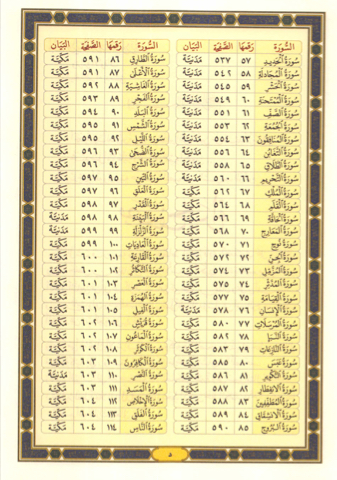 السورة رقمها الصفحة البيان
سورة الحديد ٥٧ ٥٣٧ مدنية
سورة المجادلة ٥٨ ٥٤٢ مدنية
سورة الحشر ٥٩ ٥٤٥ مدنية
سورة الممتحنة ٦٠ ٥٤٩ مدنية
سورة الصف ٦١ ٥٥١ مدنية
سورة الجمعة ٦٢ ٥٥٣ مدنية
سورة المنافقون ٦٣ ٥٥٤ مدنية
سورة التغابن ٦٤ ٥٥٦ مدنية
سورة الطلاق ٦٥ ٥٥٨ مدنية
سورة التحريم ٦٦ ٥٦٠ مدنية
سورة الملك ٦٧ ٥٦٢ مكية
سورة القلم ٦٨ ٥٦٤ مكية
سورة الحاقة ٦٩ ٥٦٦ مكية
سورة المعارج ٧٠ ٥٦٨ مكية
سورة نوح ٧١ ٥٧٠ مكية
سورة الجن ٧٢ ٥٧٢ مكية
سورة المزمل ٧٣ ٥٧٤ مكية
سورة المدثر ٧٤ ٥٧٥ مكية
سورة القيامة ٧٥ ٥٧٧ مكية
سورة الإنسان ٧٦ ٥٧٨ مدنية
سورة المرسلات ٧٧ ٥٨٠ مكية
سورة النبإ ٧٨ ٥٨٢ مكية
سورة النازعات ٧٩ ٥٨٣ مكية
سورة عبس ٨٠ ٥٨٥ مكية
سورة التكوير ٨١ ٥٨٦ مكية
سورة الانفطار ٨٢ ٥٨٧ مكية
سورة المطففين ٨٣ ٥٨٨ مكية
سورة الانشقاق ٨٤ ٥٨٩ مكية
سورة البروج ٨٥ ٥٩٠ مكية
السورة رقمها الصفحة البيان
سورة الطارق ٨٦ ٥٩١ مكية
سورة الأعلى ٨٧ ٥٩١ مكية
سورة الغاشية ٨٨ ٥٩٢ مكية
سورة الفجر ٨٩ ٥٩٣ مكية
سورة البلد ٩٠ ٥٩٤ مكية
سورة الشمس ٩١ ٥٩٥ مكية
سورة الليل ٩٢ ٥٩٥ مكية
سورة الضحى ٩٣ ٥٩٦ مكية
سورة الشرح ٩٤ ٥٩٦ مكية
سورة التين ٩٥ ٥٩٧ مكية
سورة العلق ٩٦ ٥٩٧ مكية
سورة القدر ٩٧ ٥٩٨ مكية
سورة البينة ٩٨ ٥٩٨ مدنية
سورة الزلزلة ٩٩ ٥٩٩ مدنية
سورة العاديات ١٠٠ ٥٩٩ مكية
سورة القارعة ١٠١ ٦٠٠ مكية
سورة التكاثر ١٠٢ ٦٠٠ مكية
سورة العصر ١٠٣ ٦٠١ مكية
سورة الهمزة ١٠٤ ٦٠١ مكية
سورة الفيل ١٠٥ ٦٠١ مكية
سورة قريش ١٠٦ ٦٠٢ مكية
سورة الماعون ١٠٧ ٦٠٢ مكية
سورة الكوثر ١٠٨ ٦٠٢ مكية
سورة الكافرون ١٠٩ ٦٠٣ مكية
سورة النصر ١١٠ ٦٠٣ مدنية
سورة المسد ١١١ ٦٠٣ مكية
سورة الإخلاص ١١٢ ٦٠٤ مكية
سورة الفلق ١١٣ ٦٠٤ مكية
سورة الناس ١١٤ ٦٠٤ مكية
٥